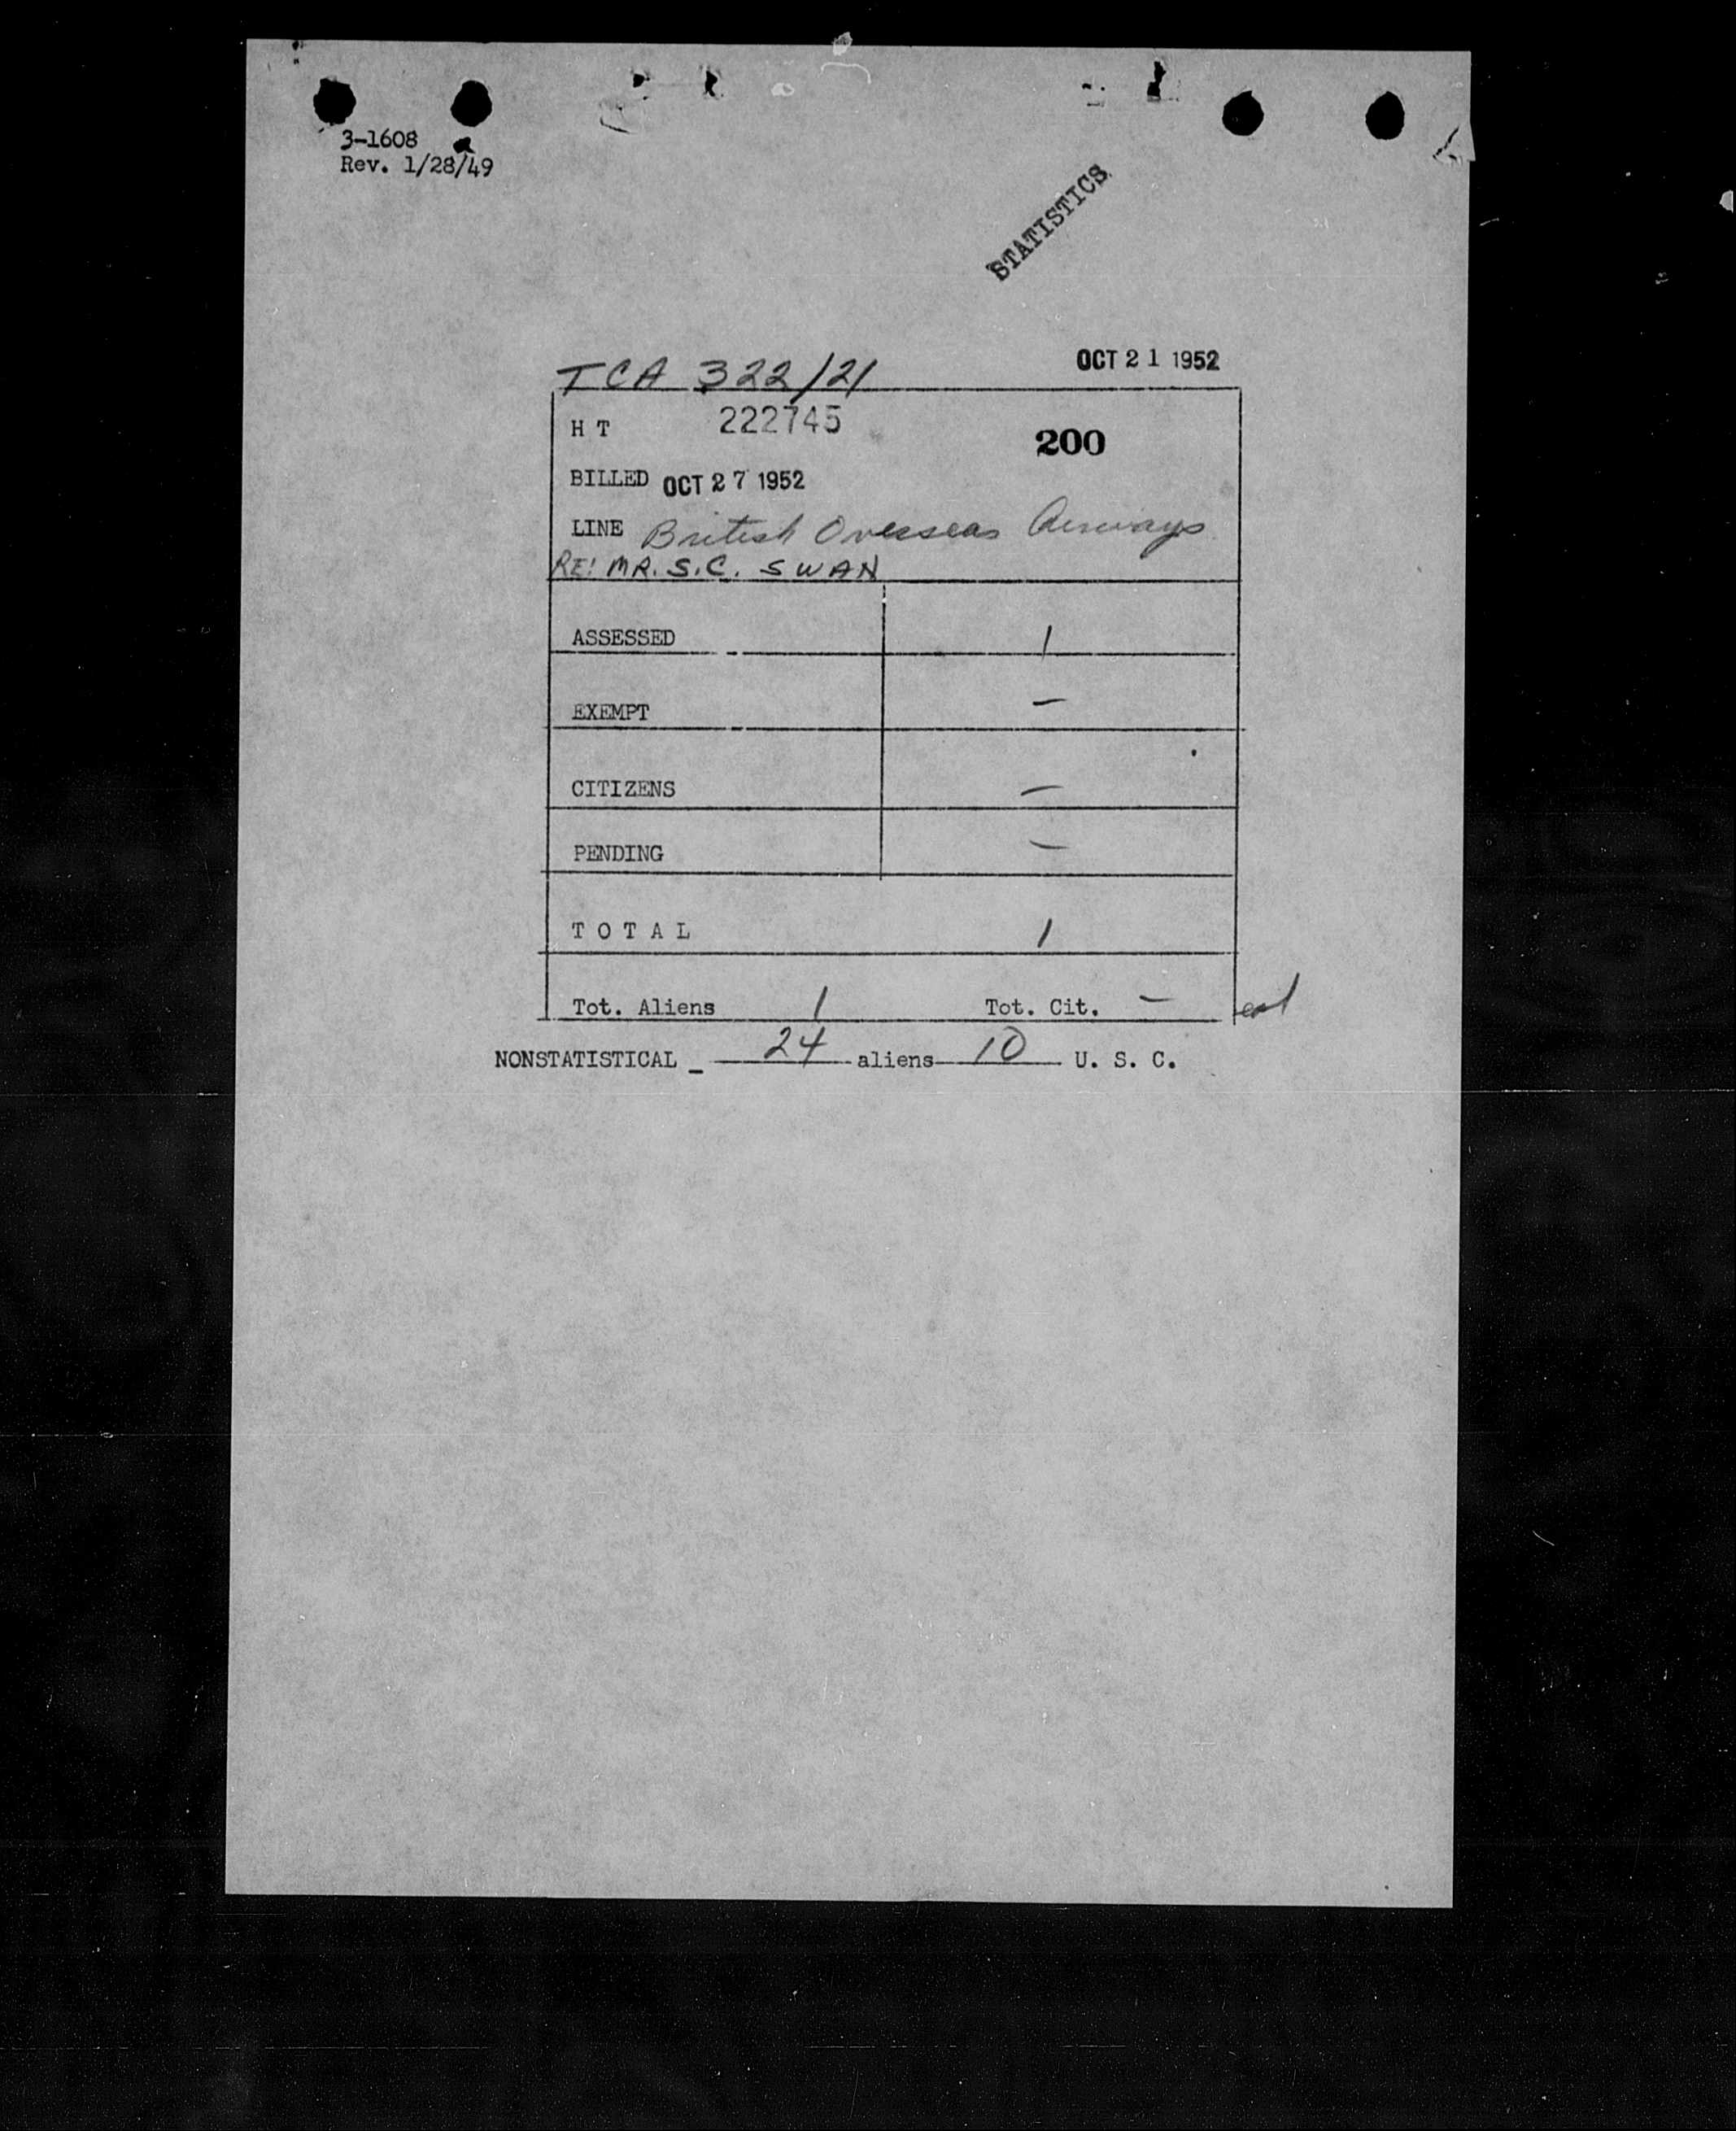 3-1608
Rev. 1/28/49
STATISTICS
TCA 322/21 OCT 21 1952
H T 222745 200
BILLED OCT 27 1952
LINE British Overseas Airways
RE: MR. S.C. SWAN
ASSESSED 1
EXEMPT —
CITIZENS —
PENDING —
T O T A L 1
Tot. Aliens 1 Tot. Cit. —
NONSTATISTICAL _ 24 aliens 10 U. S. C.